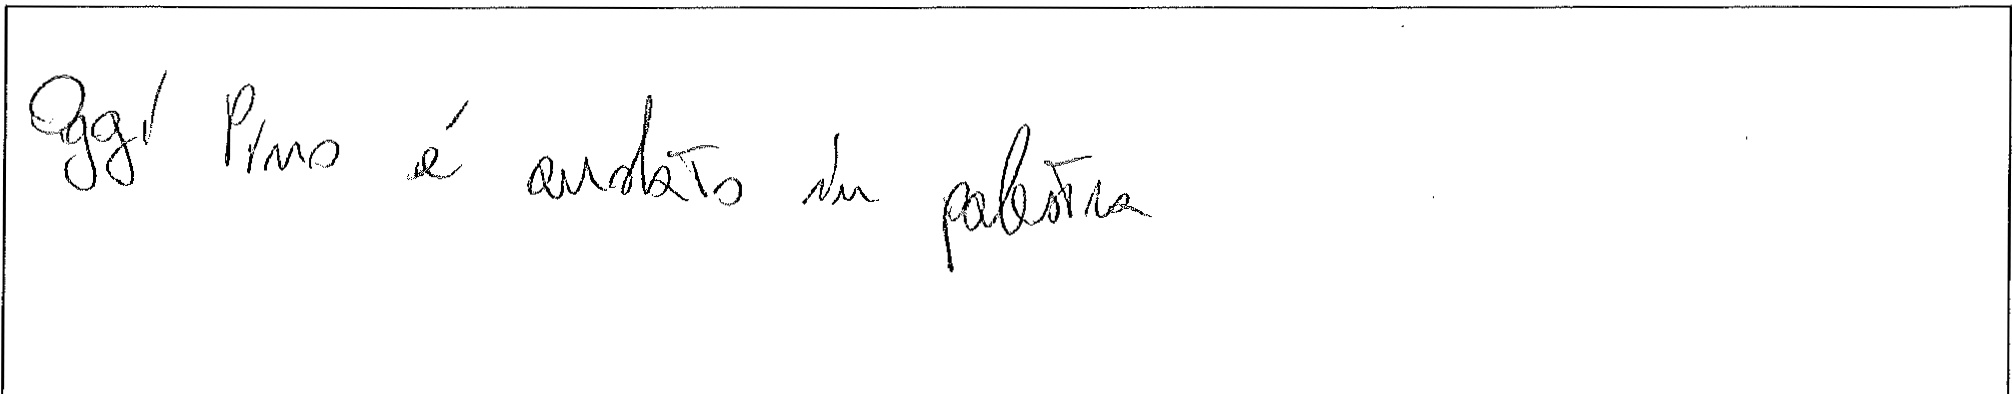 Oggi Pino é andato in palestra